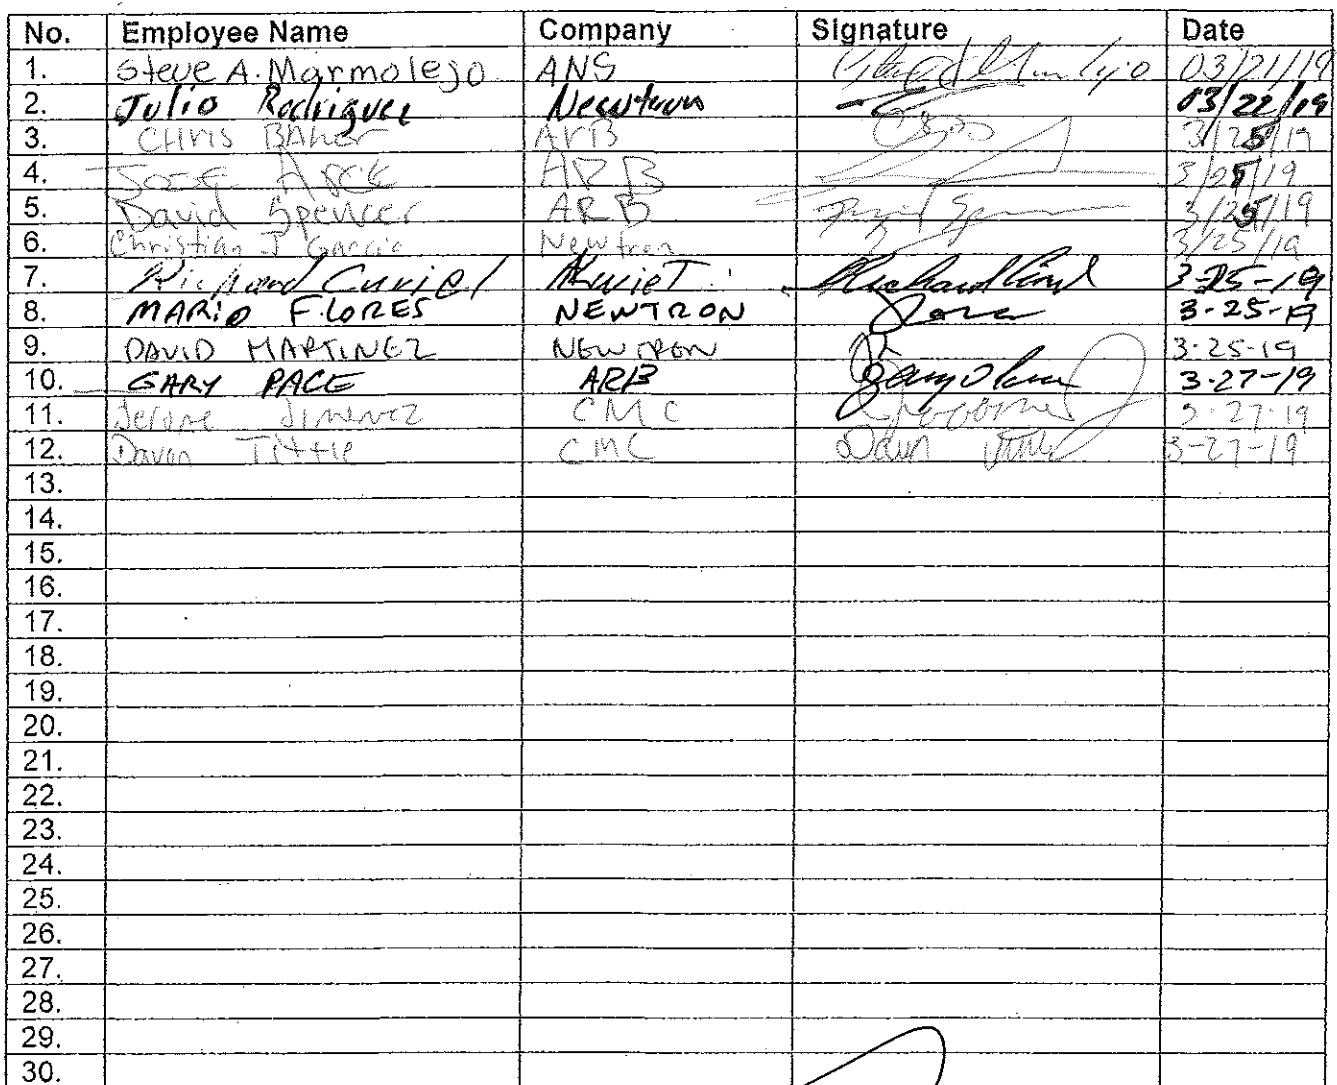 No. Employee Name Company Signature Date
1. Steve A. Marmolejo ANS 03/21/19
2. Julio Rodriguez Newtron 03/22/19
3. Chris Baker ARB 3/25/19
4. Jose Arce ARB 3/25/19
5. David Spencer ARB David 3/25/19
6. Christian J Garcia Newtron 3/25/19
7. Richard Curiel Richard 3-25-19
8. MARIO FLORES NEWTRON 3-25-19
9. DAVID MARTINEZ NEWTRON 3-25-19
10. GARY PACE ARB Gary 3-27-19
11. Jerome Jimenez CMC 3-27-19
12. Davon Tittle CMC 3-27-19
13.
14.
15.
16.
17.
18.
19.
20.
21.
22.
23.
24.
25.
26.
27.
28.
29.
30.